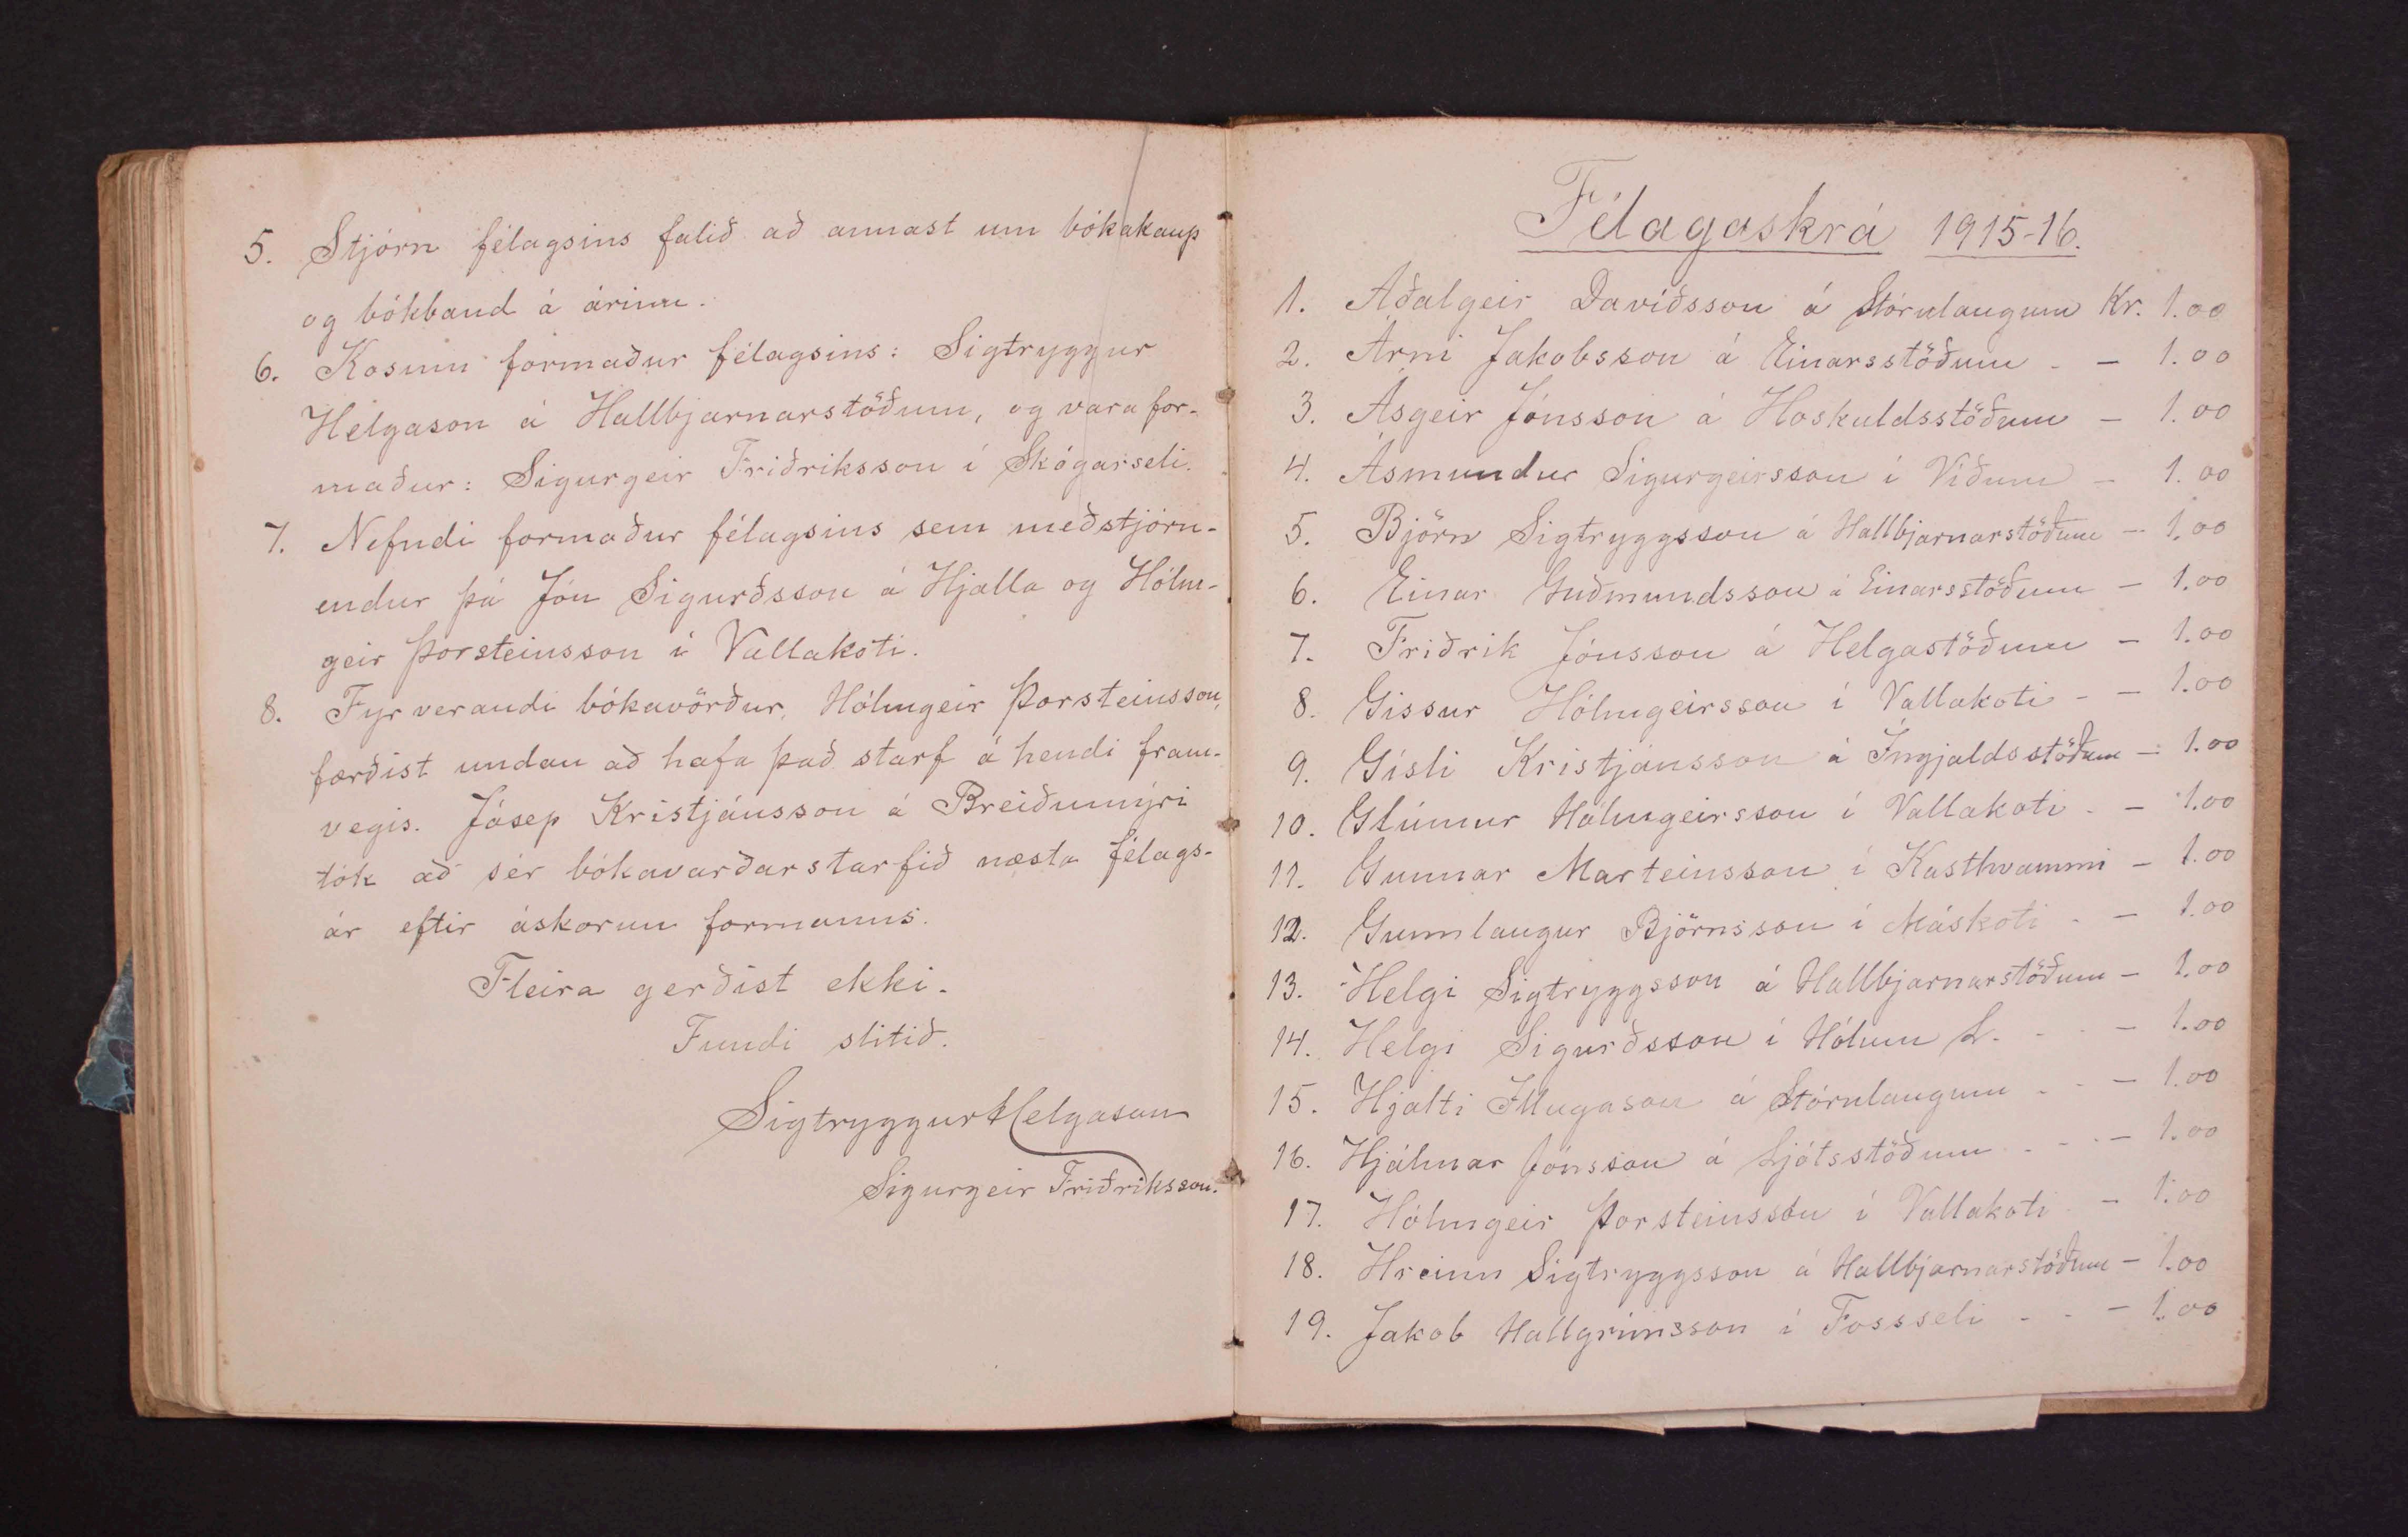 5. Stjórn félagsins falið að annast um bókakaup
og bókband á árinu.
6. Kosinn formaður félagsins: Sigtryggur
Helgason á Hallbjarnarstöðum, og vara for-
maður: Sigurgeir Friðriksson í Skógarseli.
7. Nefndi formaður félagsins sem meðstjórn-
endur þá Jón Sigurðsson á Hjalla og Hólm-
geir Þorsteinsson í Vallakoti.
8. Fyrverandi bókavörður, Hólmgeir Þorsteinsson,
færðist undan að hafa það starf á hendi fram-
vegis. Jósep Kristjánsson á Breiðumýri
tók að sér bókavarðarstarfið næsta félags-
ár eftir áskorun formanns.
Fleira gerðist ekki.
Fundi slitið.
Sigtryggur Helgason
Sigurgeir Friðriksson.
Félagaskrá 1915-16.
1. Aðalgeir Davíðsson á Stórulaugum Kr. 1.00
2. Árni Jakobsson á Einarsstöðum - - 1.00
3. Ásgeir Jónsson á Hoskuldsstöðum - 1.00
4. Ásmundur Sigurgeirsson í Víðum - 1.00
5. Björn Sigtryggsson á Hallbjarnarstöðum - 1.00
6. Einar Guðmundsson á Einarsstöðum - 1.00
7. Friðrik Jónsson á Helgastöðum - 1.00
8. Gissur Hólmgeirsson í Vallakoti - - 1.00
9. Gísli Kristjánsson á Ingjaldsstöðum - 1.00
10. Glúmur Hólmgeirsson í Vallakoti - - 1.00
11. Gunnar Marteinsson í Kasthvammi - 1.00
12. Gunnlaugur Björnsson í Máskoti - - 1.00
13. Helgi Sigtryggsson á Hallbjarnarstöðum - 1.00
14. Helgi Sigurðsson í Hólum L. - - - 1.00
15. Hjalti Illugason á Stórulaugum - - - 1.00
16. Hjálmar Jónsson á Ljótsstöðum - - - - 1.00
17. Hólmgeir Þorsteinsson í Vallakoti - - 1.00
18. Hreinn Sigtryggsson á Hallbjarnarstöðum - 1.00
19. Jakob Hallgrímsson í Fossseli - - - 1.00